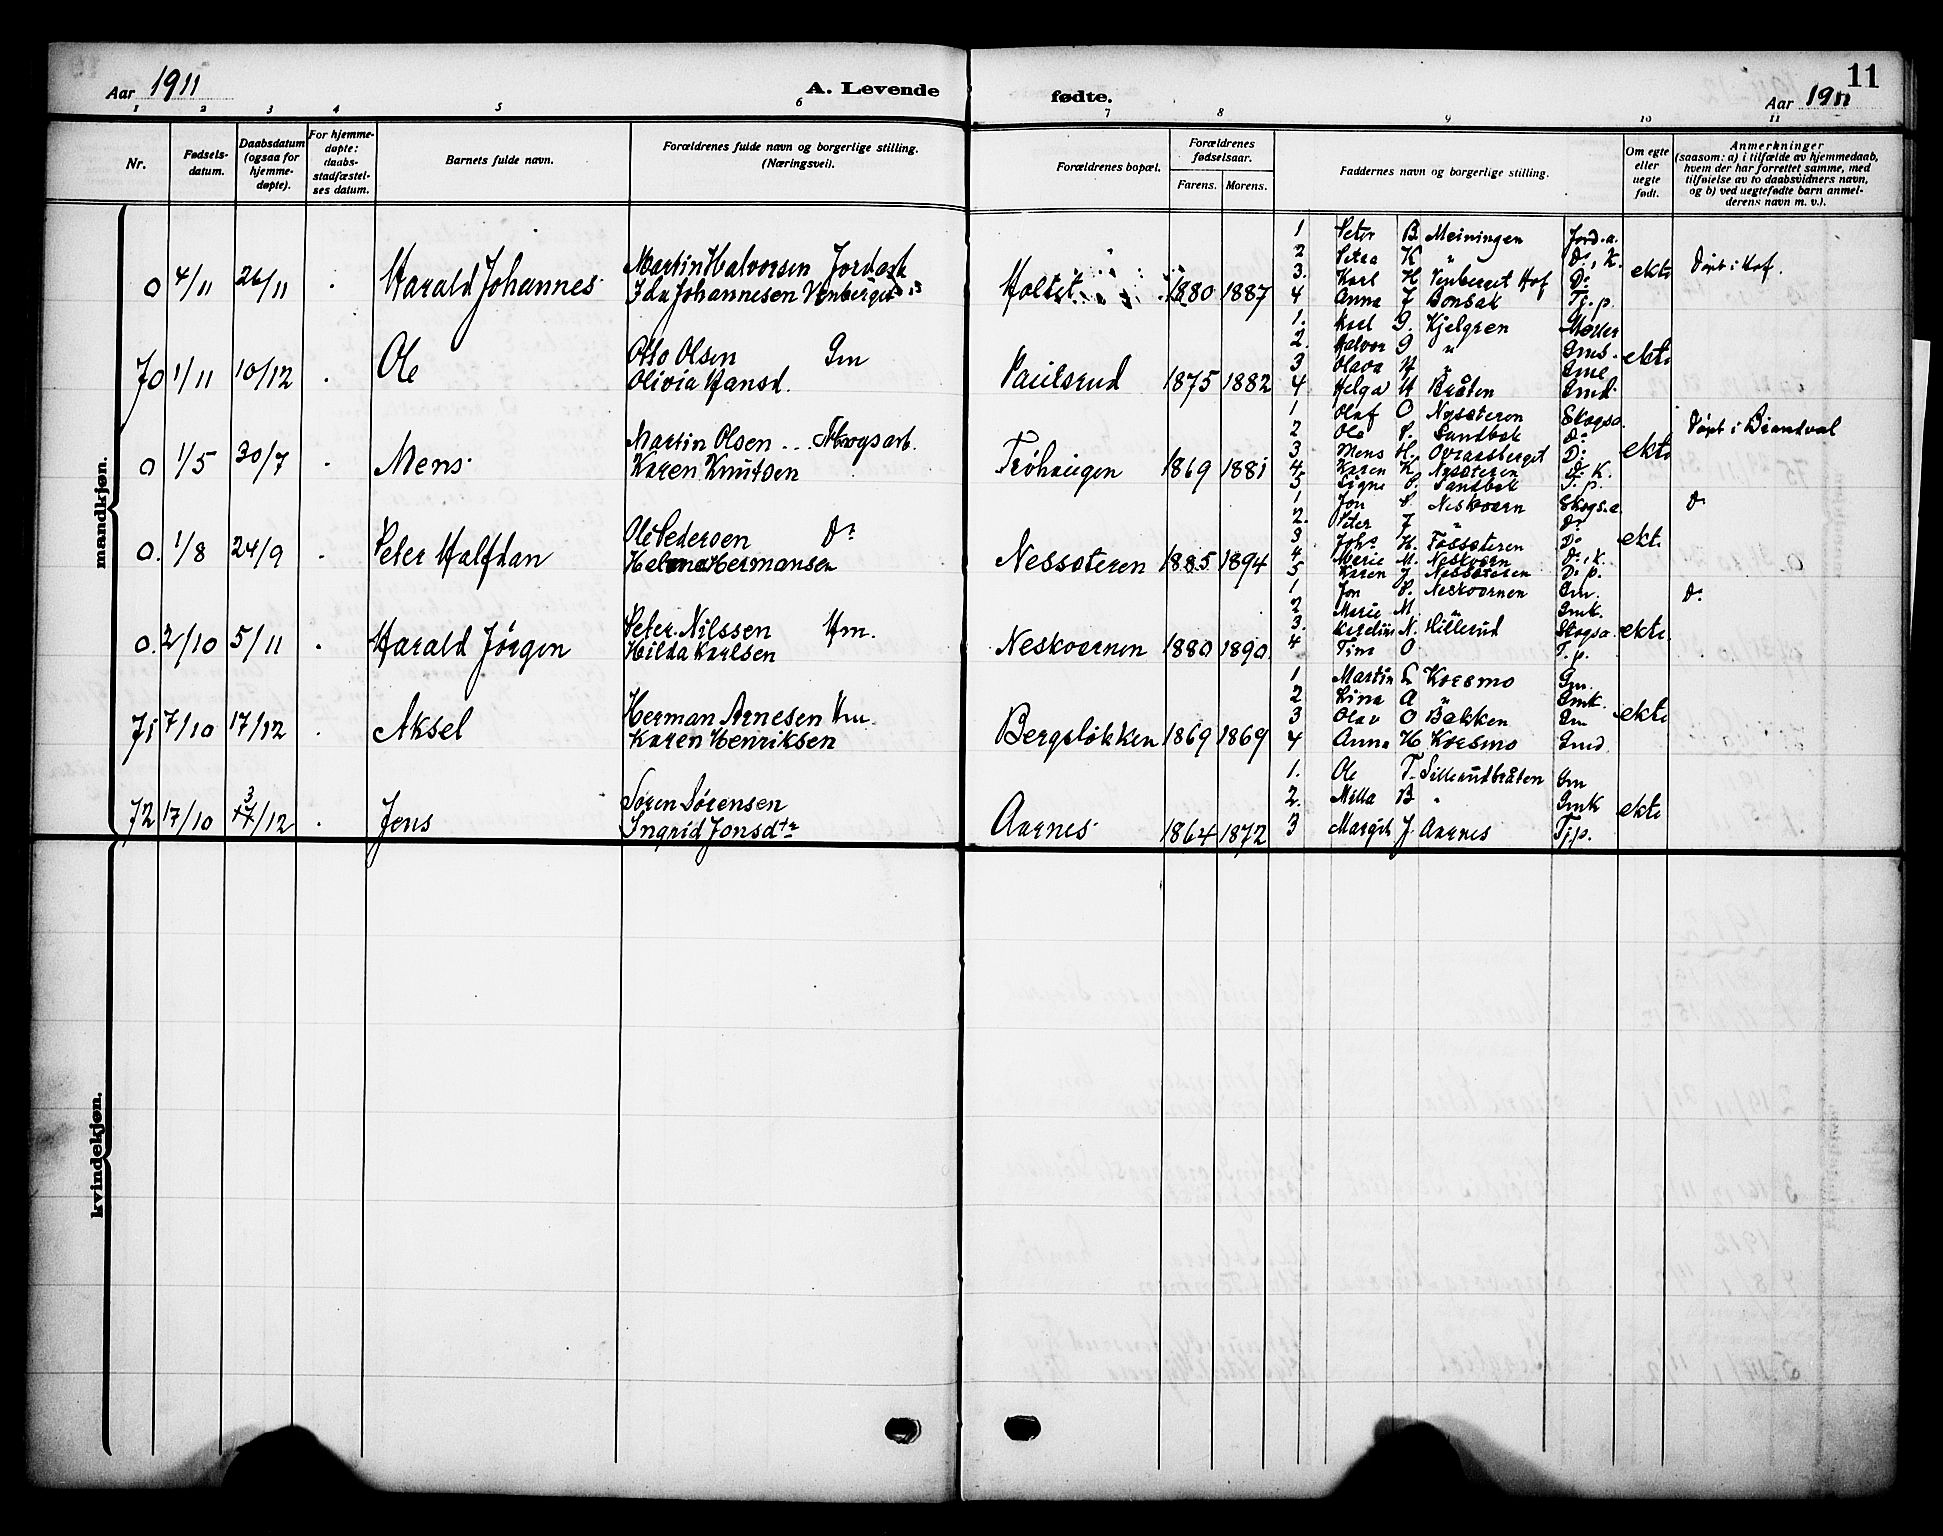 Aar 1911
A. Levende
fødte.
11
Aar 1911
1 2 3 4 5 6 7 8 9 10 11
Nr.
Fødsels-
datum.
Daabsdatum
(ogsaa for
hjemme-
døpte).
For hjemme-
døpte:
daabs-
stadfæstel-
ses datum.
Barnets fulde navn.
Forældrenes fulde navn og borgerlige stilling.
(Næringsvei).
Forældrenes bopæl.
Forældrenes
fødselsaar.
Farens. Morens.
Faddernes navn og borgerlige stilling.
Om egte
eller
uegte
født.
Anmerkninger
(saasom: a) i tilfælde av hjemmedaab,
hvem der har forrettet samme, med
tilføielse av to daabsvidners navn,
og b) ved uegtefødte barn anmel-
derens navn m. v.).
mandkjøn.
0 4/11 26/11 Harald Johannes
Martin Halvorsen Jordarb
Ida Johannesen Venberget
1880 1887
1 Peter B. Meiningen Jord.a.
2 Petra K " Do, K.
3. Karl H Venberget Hof Do
4 Anna J Bonsak Tj.p.
ekte
Døpt i Hof.
70 1/11 10/12 Ole
Otto Olsen Gm
Olivia Hansd.
Paulsrud 1875 1882
1. Karl G. Kjelgren
2. Halvor G " Gms.
3 Olava H "
4 Helga H Bråten Gmd
ekte
0 1/5 30/7 Mens
Martin Olsen Skogsarb.
Karen Knutsen
Trøhaugen 1869 1881
1 Olaf O Nysæteren Skogsa.
2 Ole P. Sandbak Do
3 Mens H. Do
4. Karen K. Nysæteren Do K.
5 Signe P. Sandbak T. p.
ekte
Døpt i Brandval
0. 1/8 24/9 Peter Halfdan
Ole Pedersen Do
Helene Hermansen
Nessæteren 1885 1894
1 Jon P. Neskværn Skogs.a
2. Peter J " Do
3 Johs H. Fossæteren Do
4 Marie M. Neskværn Do, K.
5 Karen J Nessæteren D. p.
ekte
Do
0. 2/10 5/11 Harald Jørgen
Peter Nilssen Hm.
Hilda Karlsen
Neskværnen 1880 1890
1 Jon P. Neskværnen Gm.
2 Marie M. " Gmk.
3. Karoline N. Hillerud Skogsa.
4 Tina O. T. p.
ekte
Do
71 7/10 17/12 Aksel
Herman Arnesen Hm.
Karen Henriksen
Bergsløkken 1869 1869
1 Martin L Korsmo Gm.
2 Lina A " Gmk.
3 Olav O Bakken Gm
4 Anna H Korsmo Gmd.
ekte
72 17/10 3/12 Jens
Søren Sørensen
Ingrid Jonsdtr
Aarnes 1864 1872
1. Ole T. Sillerudbråten Gm
2. Milla B " Gmk
3 Margit J Aarnes Tj.p.
ekte
kvindekjøn.